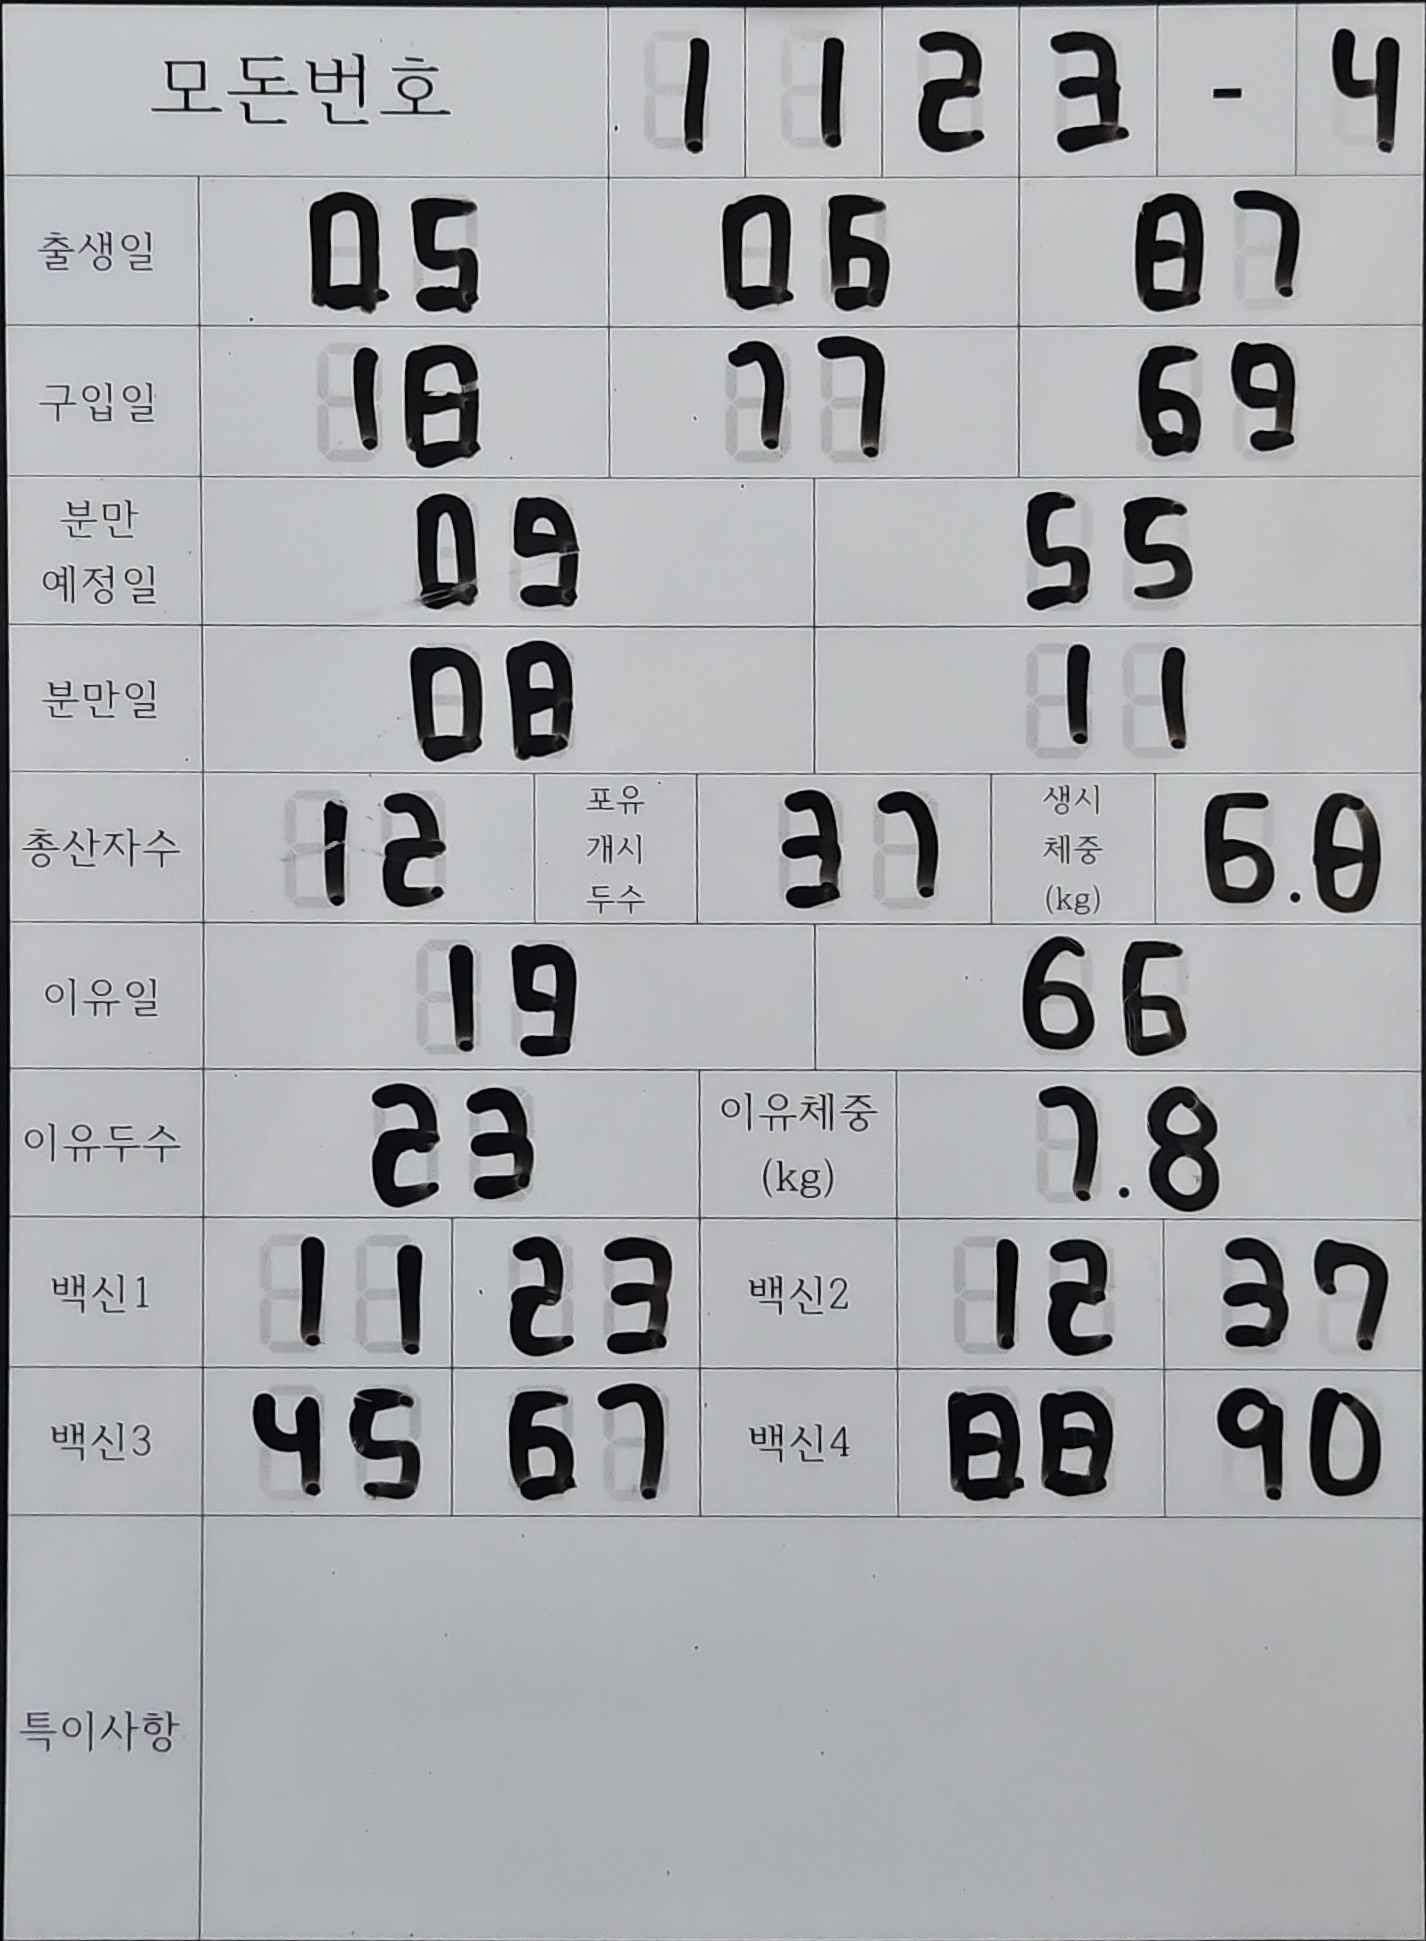 모돈번호 1 1 2 3 - 4
출생일 05 06 87
구입일 18 77 69
분만 예정일 09 55
분만일 08 11
총산자수 12 포유 개시 두수 37 생시 체중 (kg) 6.8
이유일 19 66
이유두수 23 이유체중 (kg) 7.8
백신1 11 23 백신2 12 37
백신3 45 67 백신4 88 90
특이사항